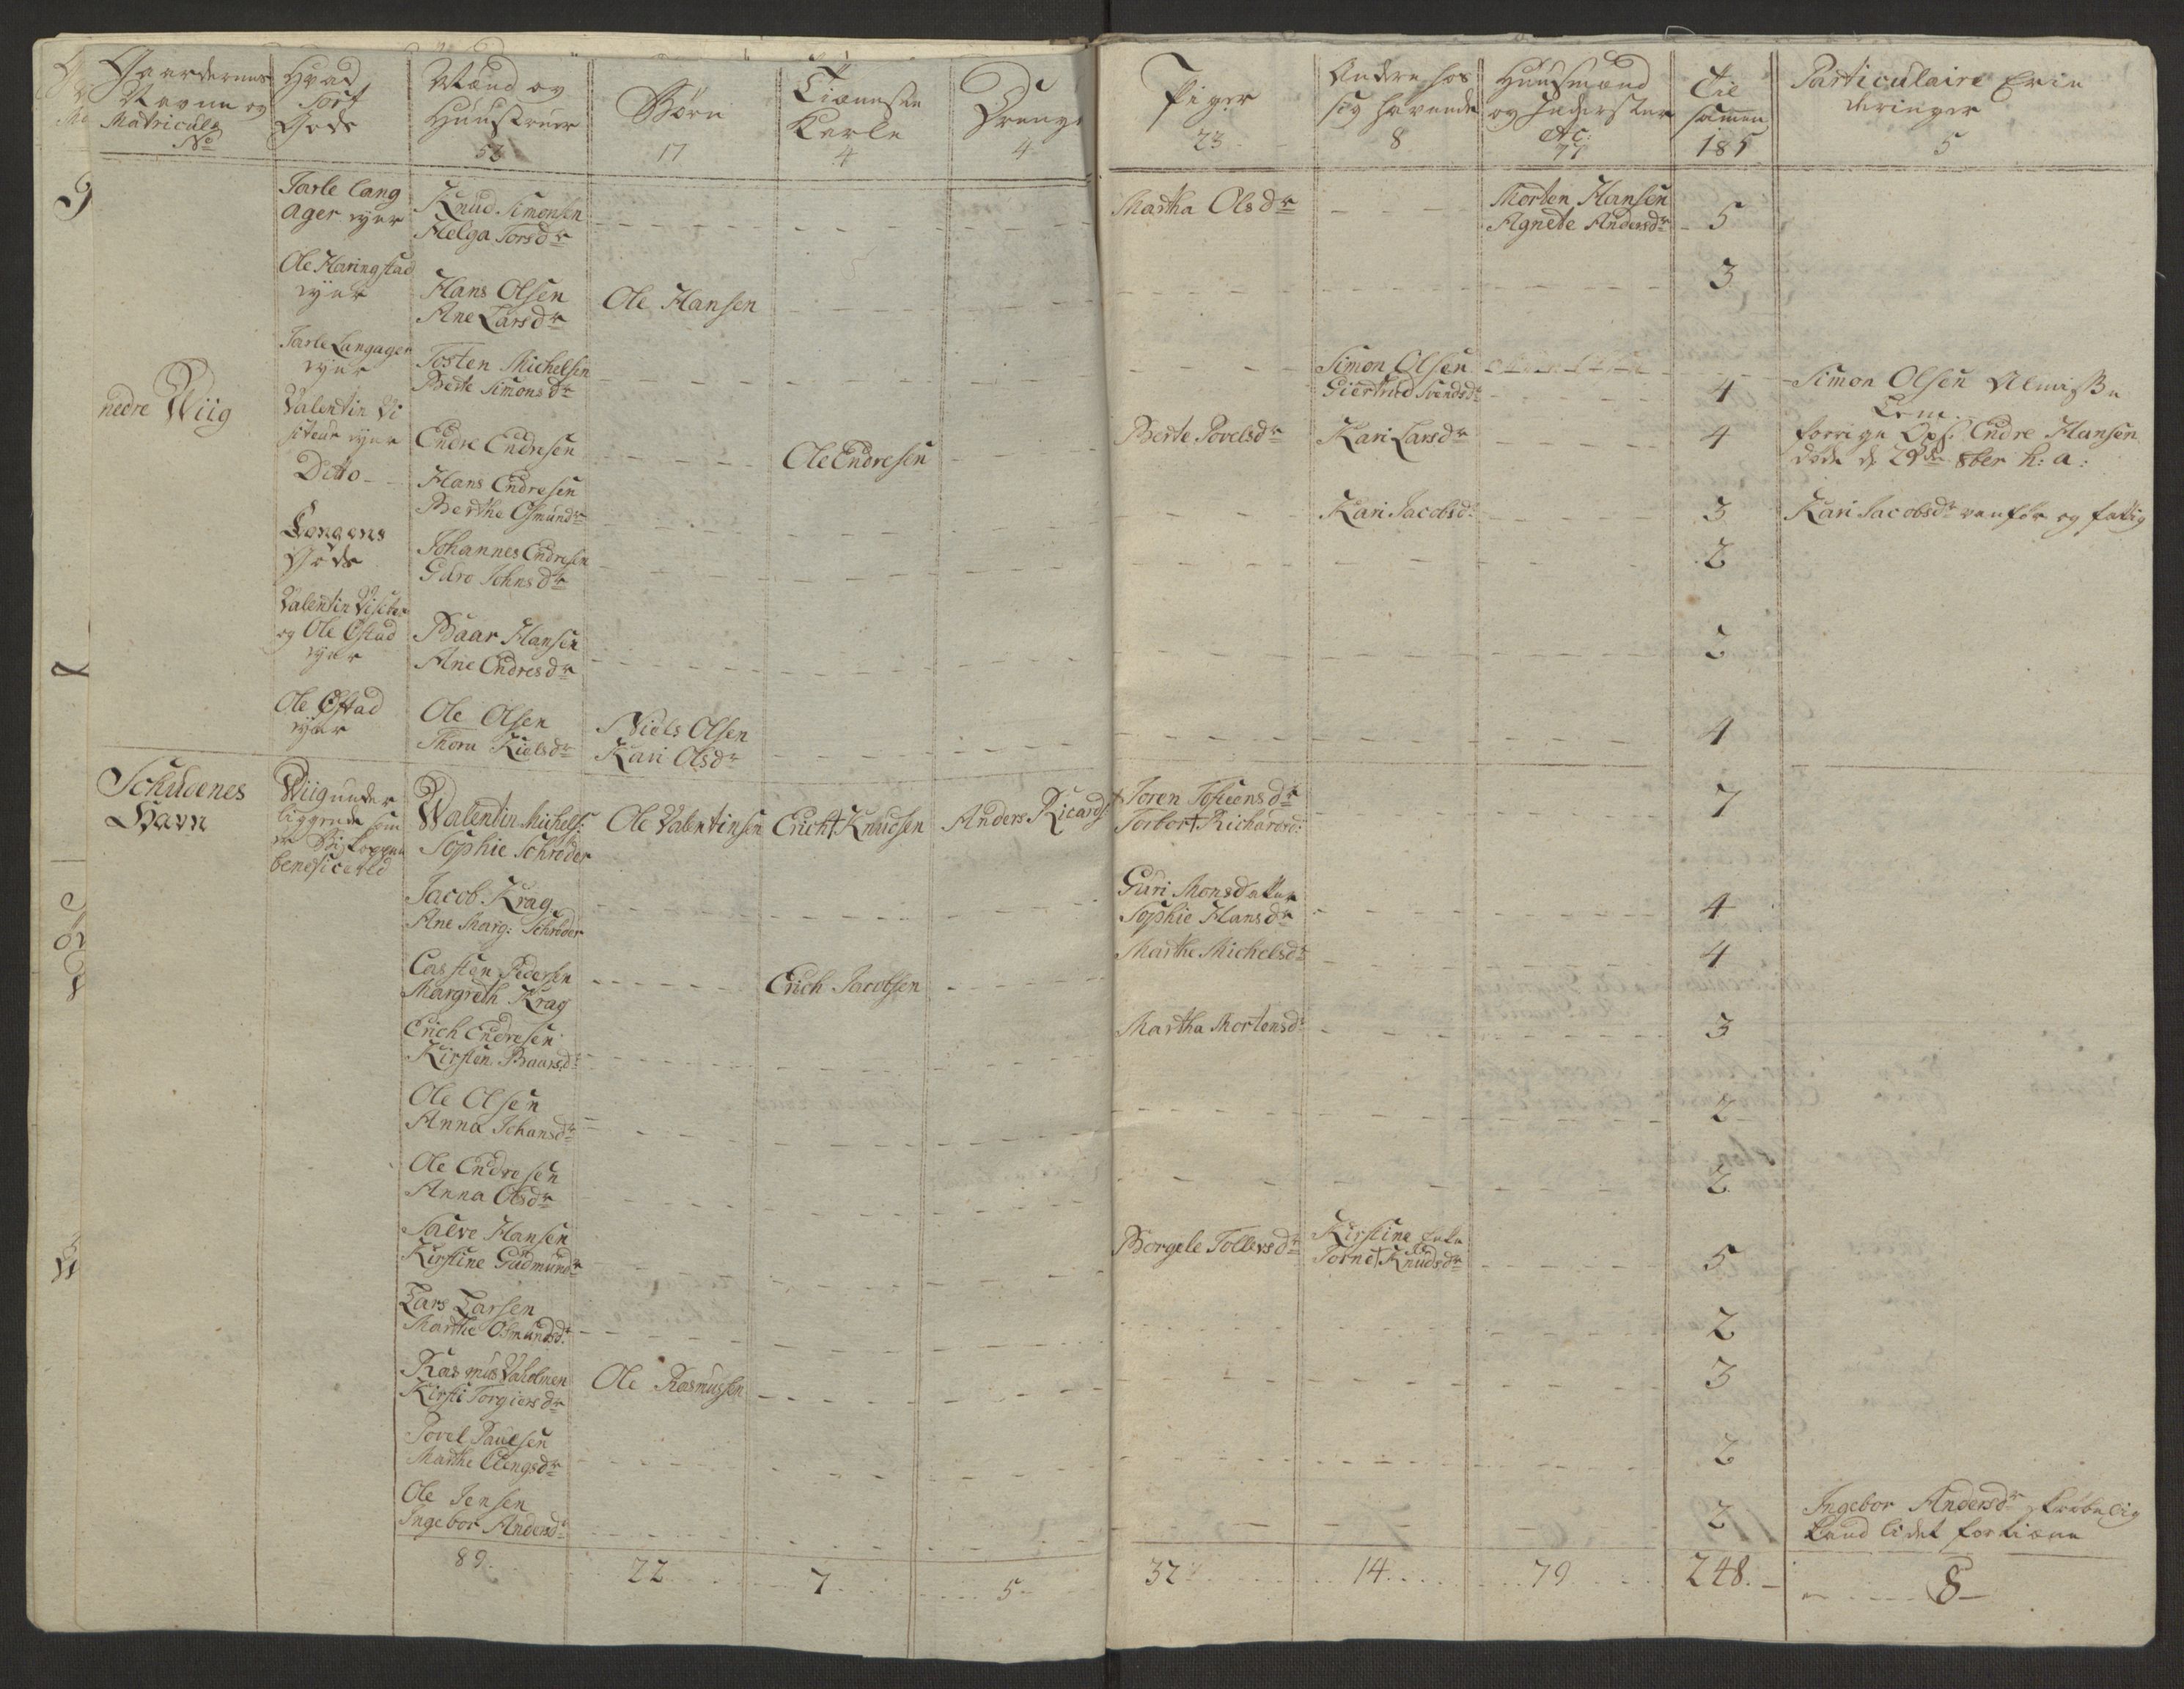 Gaardernes
Navne og
Matricula
No
Hvad
Sort
Gods
Mænd og
Hustruer
53
Børn
17
Tienneste
Karle
4
Drenge
4
Piger
23
Andre hos
sig havende
8
Huusmænd
og Inderster
etc:
77
Til
sammen
185
Particulaire Erin
deringer
5
nedre Wiig
Tarle Lang
ager eyer
Knud Simonsen
Helga Torsdr
Martha Olsdr
Morten Hansen
Agnete Andersdr
5
Ole Haringstad
eyer
Hans Olsen
Ane Larsdr
Ole Hansen
3
Tarle Langager
eyer
Tosten Michelsen
Berte Simonsdr
Simon Olsen
Giertrud Svendsdr
4
Simon Olsen Almisse
Lem.
Valentin Vi
siteur eyer
Endre Endresen
Ole Endresen
Berte Povelsdr
Kari Larsdr
4
forrige Ops: Endre Hansen
døde d 29de 8ber h: a:
Ditto
Hans Endresen
Berthe Osmundr
Kari Jacobsdr
3
Kari Jacobsdr vanfør og fattig
Kongens
Gods
Johannes Endresen
Guro Johnsdr
2
Valentin Visiteur
og Ole Østad
eyer
Baar Hansen
Ane Endresdr
2
Ole Østad
eyer
Ole Olsen
Thoru Kielsdr
Niels Olsen
Kari Olsdr
4
Schudenes
Havn
Wiig under
liggende som
er Biskoppens
beneficered
Walentin Michels:
Sophie Schrøder
Ole Valentinsen
Erich Knudsen
Anders Ricards:
Joren Tosteensdr
Torbor Richardsd:
7
Jacob Krag
Ane Marg: Schrøder
Guri Monsdatter
Sophie Hansdr
4
Casten Pedersen
Margreth Krag
Erich Jacobsen
Marthe Michelsdr
4
Erich Endresen
Kirsten Baarsdr
Martha Mortensdr
3
Ole Olsen
Anna Johansdr
2
Ole Endresen
Anna Olsdr
2
Salve Hansen
Kirstine Gudmundr
Borgele Tollevsdr
Kirstine Enke
Torne Knudsdr
5
Lars Larsen
Marthe Osmundsdr
2
Rasmus Valolmen
Kirsti Torgiersdr
Ole Rasmussen
3
Povel Paulsen
Marthe Elengsdr
2
Ole Jensen
Ingebor Andersdr
2
Ingebor Andersdr skrøbelig
kand lidet fortiene
89.
22
7
5
32
14
79
248.
8